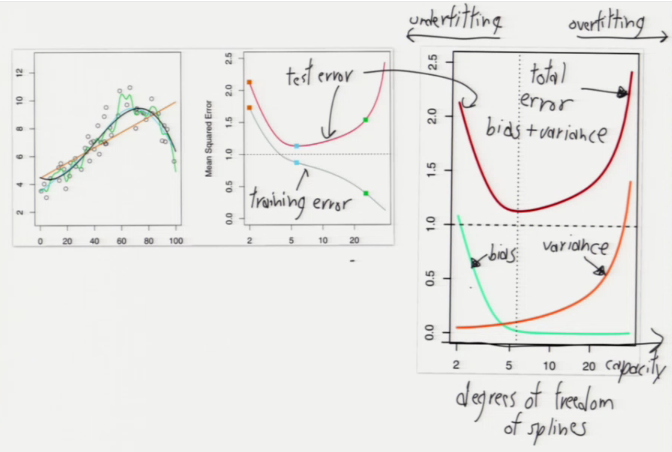 underfitting
overfitting
12
10
8
6
4
2
0 20 40 60 80 100
Mean Squared Error
2.5
2.0
1.5
1.0
0.5
0.0
2 5 10 20
test error
training error
2.5
2.0
1.5
1.0
0.5
0.0
2 5 10 20
total
error
bias + variance
bias
variance
capacity
degrees of freedom
of splines